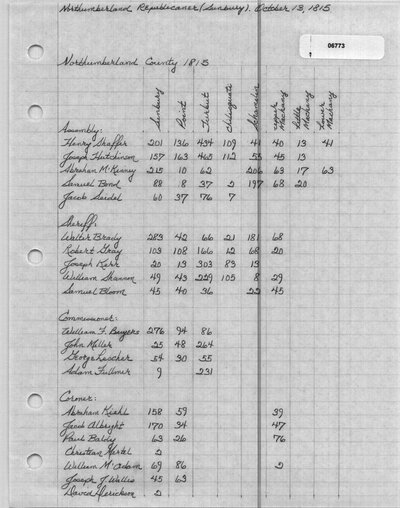 Northumberland Republicaner (Sunbury). October 13, 1815
06773
Northumberland County 1815
Sunbury Point Turbut Chilisquaque Shamokin Upper Mahanoy Little Mahanoy Lower Mahanoy
Assembly:
Henry Shaffer 201 136 434 109 41 40 13 41
Joseph Hutchinson 157 163 465 112 55 45 13
Abraham McKinney 215 10 62 206 63 17 63
Samuel Bond 88 8 37 2 197 68 20
Jacob Seidel 60 37 76 7
Sheriff:
Walter Brady 283 42 66 21 181 68
Robert Gray 103 108 166 12 68 20
Joseph Kerr 20 13 303 83 13
William Shannon 49 43 229 105 8 29
Samuel Bloom 45 40 36 22 45
Commissioner:
William F. Buyers 276 94 86
John Miller 25 48 264
George Lescher 54 30 55
Adam Fullmer 9 231
Coroner:
Abraham Kiehl 158 59 39
Jacob Albright 170 34 47
Paul Baldy 63 26 76
Christian Martel 2
William McAdam 69 86 2
Joseph J. Wallis 45 63
David Derickson 2